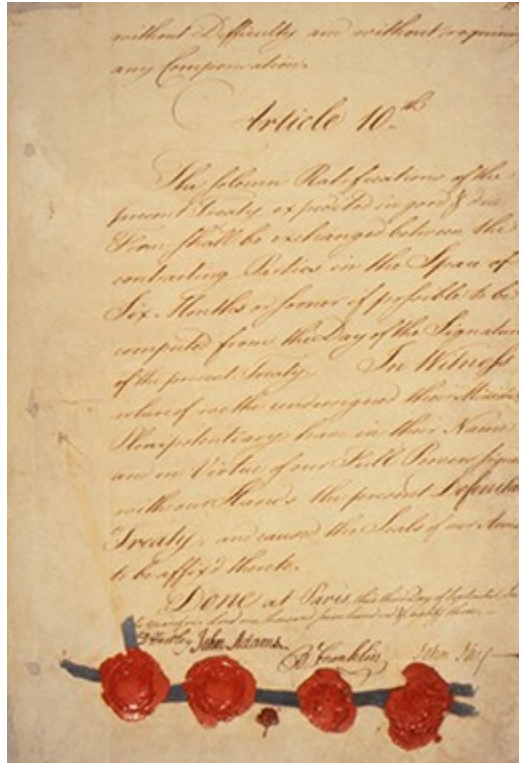 without Difficulty and without requiring
any Compensation.
Article 10.th
The solemn Ratifications of the
present Treaty expedited in good & due
Form shall be exchanged between the
contracting Parties in the Space of
Six Months or sooner if possible to be
computed from the Day of the Signature
of the present Treaty. In Witness
whereof we the undersigned their Ministers
Plenipotentiary have in their Name
and in Virtue of our Full Powers signed
with our Hands the present Definitive
Treaty, and caused the Seals of our Arms
to be affix'd thereto.
Done at Paris, this third Day of September, In
the one thousand seven hundred & eighty three.
D Hartley John Adams. B Franklin John Jay